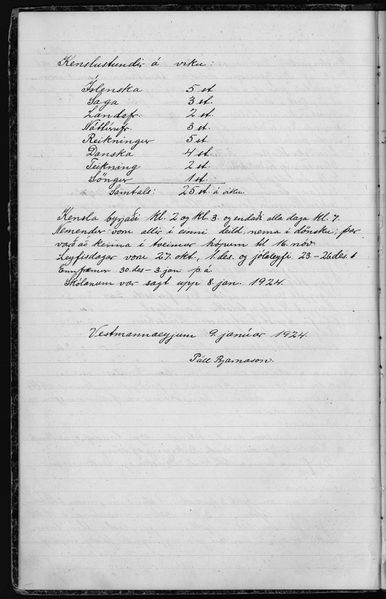 Kenslustundir á viku:
Íslenska 5 st.
Saga 3 st.
Landafr. 2 st.
Náttúrufr. 3 st.
Reikningur 5 st.
Danska 4 st.
Teikning 2 st.
Söngur 1 st.
Samtals: 25 st. á viku.
Kensla byrjaði kl. 2 og kl. 3. og endaði alla daga kl. 7.
Nemendur voru allir í einni deild nema í dönsku; þar
varð að kenna í tveimur hópum til 16. nóv.
Leyfisdagar voru 27. okt., 1. des. og jólaleyfi 23-26 des.
Ennfremur 30. des - 3. jan
Skólanum var sagt upp 8. jan. 1924.
Vestmannaeyjum 9. janúar 1924.
Páll Bjarnason.